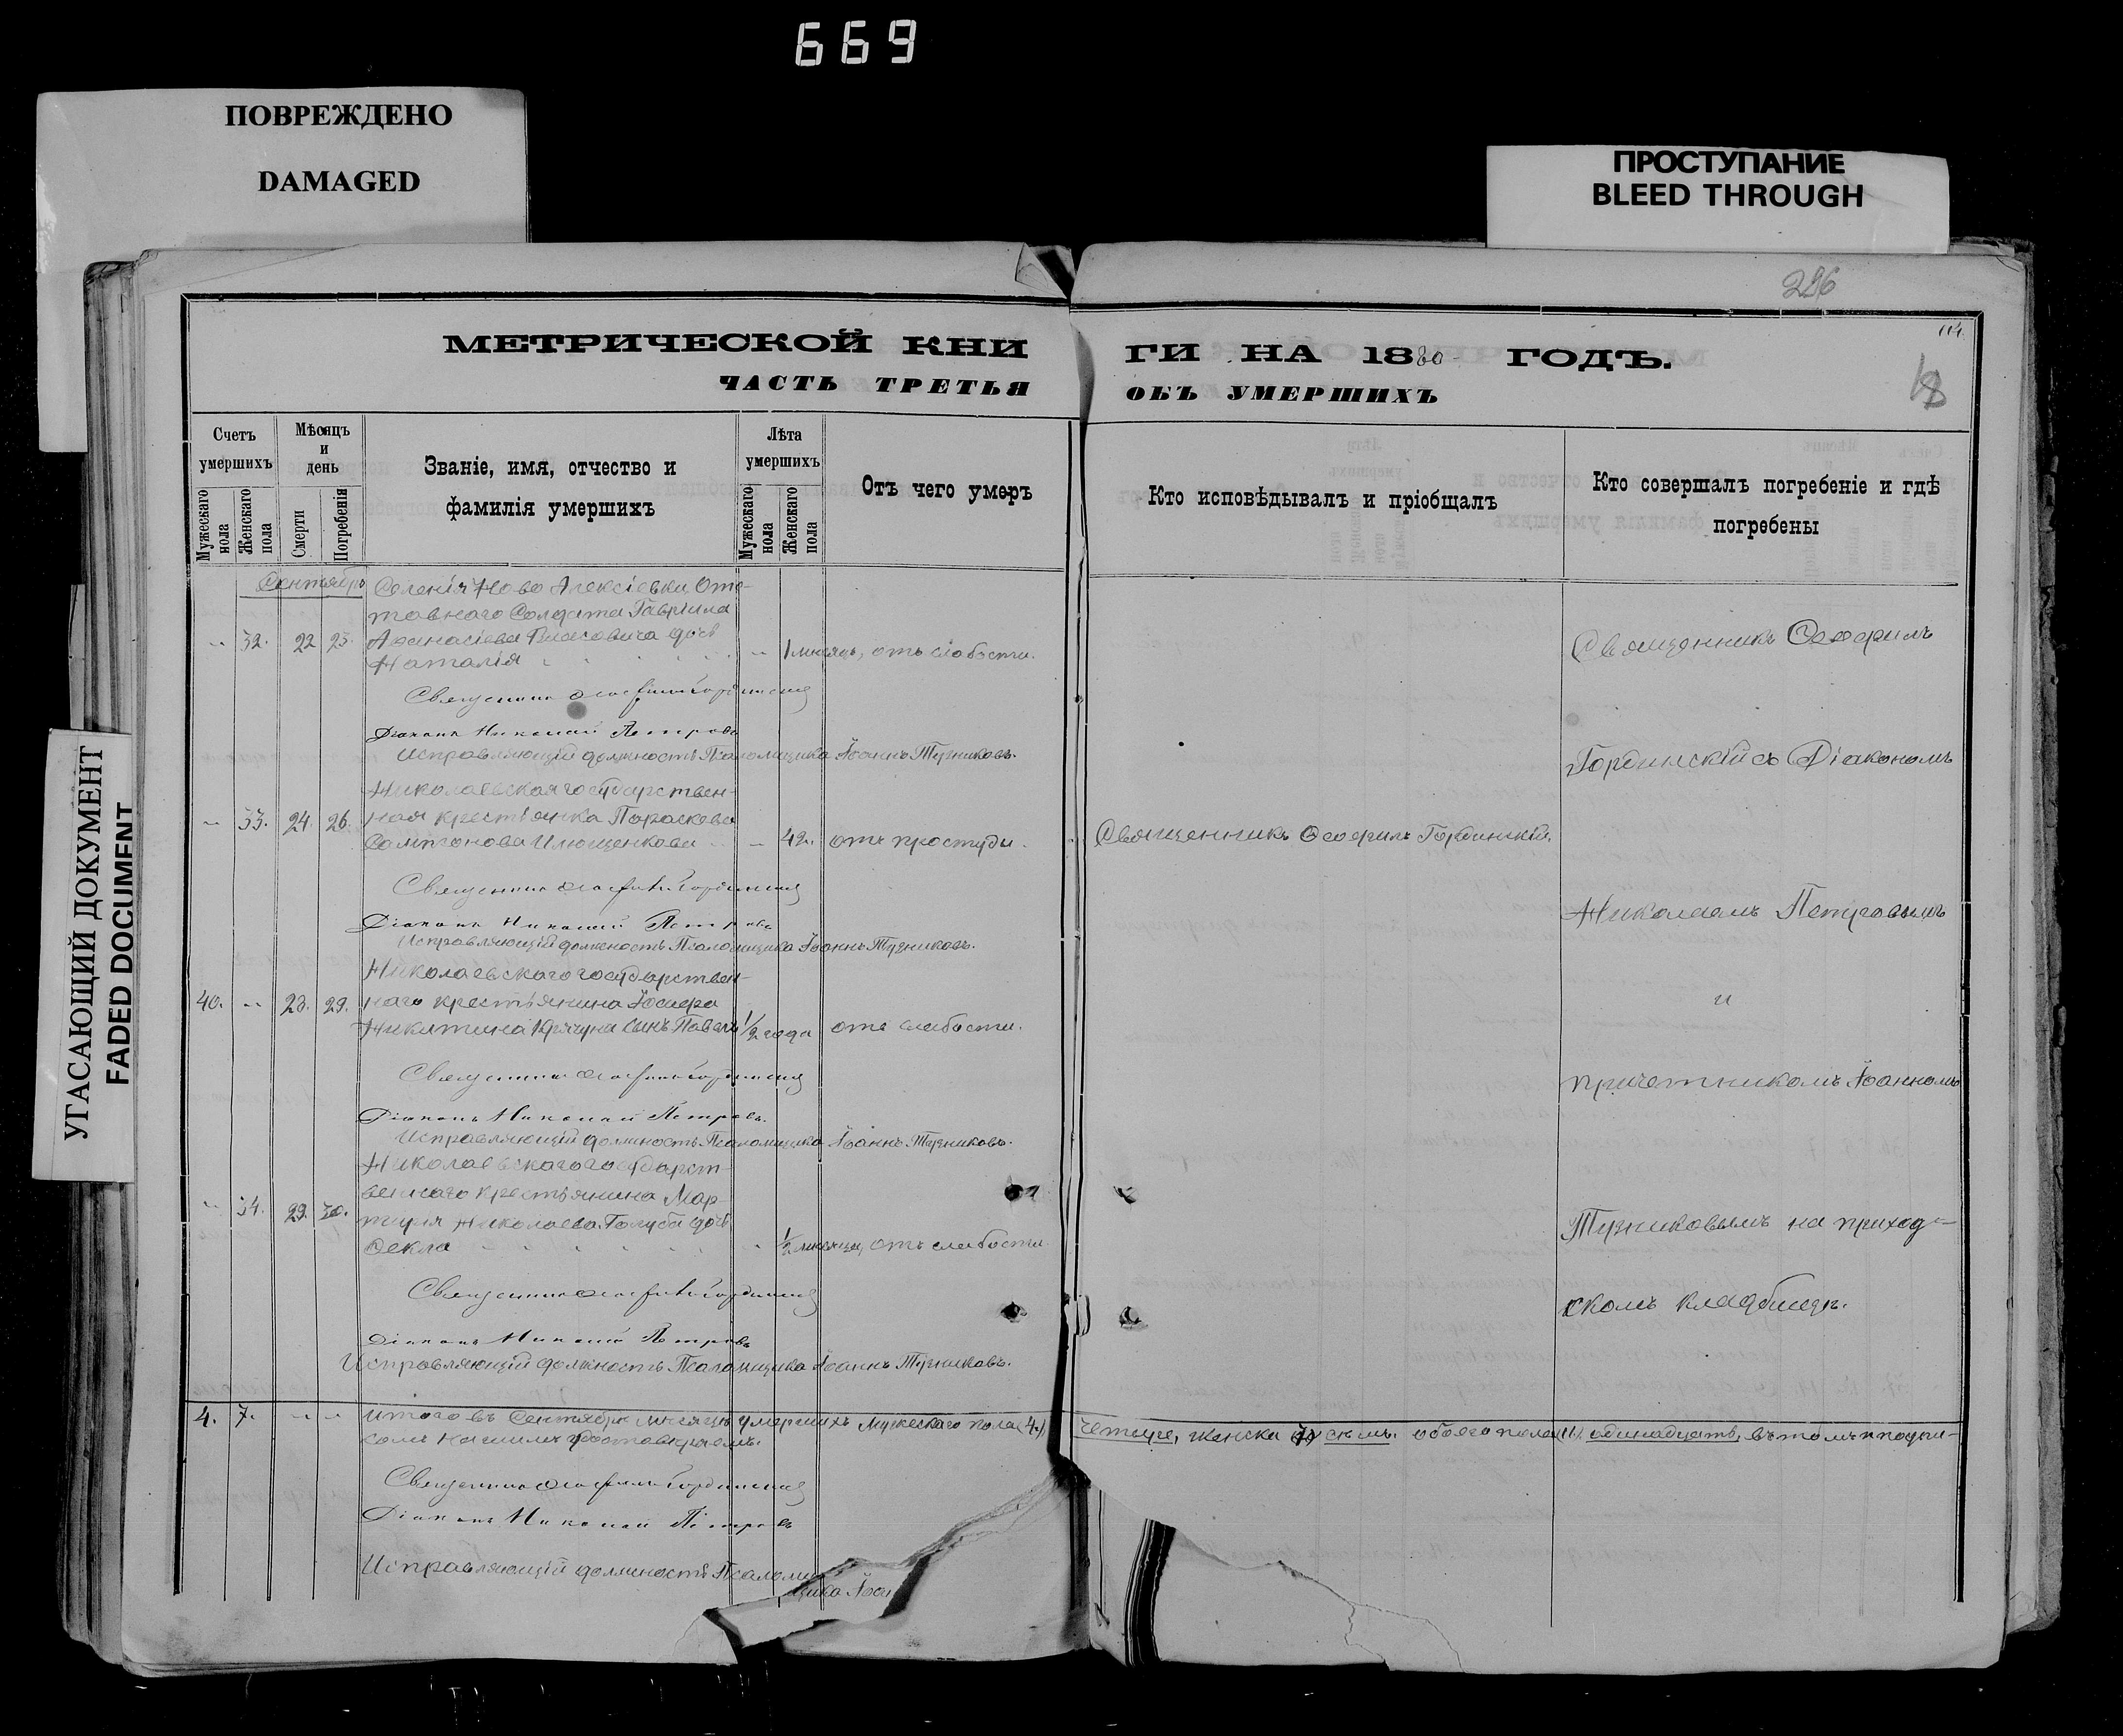 669
ПОВРЕЖДЕНО
DAMAGED
ПРОСТУПАНИЕ
BLEED THROUGH
УГАСАЮЩИЙ ДОКУМЕНТ
FADED DOCUMENT
286
114
18
МЕТРИЧЕСКОЙ КНИ
ГИ НА 1880 ГОДЪ.
ЧАСТЬ ТРЕТЬЯ
ОБЪ УМЕРШИХЪ
Счетъ умершихъ
Мужескаго пола
Женскаго пола
Мѣсяцъ и день
Смерти
Погребенія
Званіе, имя, отчество и
фамилія умершихъ
Лѣта умершихъ
Мужескаго пола
Женскаго пола
Отъ чего умеръ
Кто исповѣдывалъ и пріобщалъ
Кто совершалъ погребеніе и гдѣ
погребены
Сентябрь
Селенія Ново Алексіевки Отс-
тавнаго Солдата Гавріила
32. 22 23. Аѳанасіева Власовича дочь
Наталія 1 мѣсяцъ, отъ слабости.
Священникъ Ѳеофилъ Гординскій
Діаконъ Николай Петровъ
Исправляющій должность Псаломщика Іоаннъ Тузниковъ.
Николаевская государствен-
33. 24. 26. ная крестьянка Параскева
Сампсонова Ильющенкова 42. отъ простуды.
Священникъ Ѳеофилъ Гординскій.
Священникъ Ѳеофилъ Гординскій
Діаконъ Николай Петровъ
Исправляющій должность Псаломщика Іоаннъ Тузниковъ.
Николаевскаго государствен-
40. 23. 29. наго крестьянина Іосифа
Никитина сынъ Павелъ 1/2 года отъ слабости.
Священникъ Ѳеофилъ Гординскій
Діаконъ Николай Петровъ.
Исправляющій должность Псаломщика Іоаннъ Тузниковъ.
Николаевскаго государст-
34. 29. 30. веннаго крестьянина Мар-
Николаева Голуба дочь
Ѳекла 1/2 мѣсяца, отъ слабости
Священникъ Ѳеофилъ Гординскій
Діаконъ Николай Петровъ
Исправляющій должность Псаломщика Іоаннъ Тузниковъ.
Священникъ Ѳеофилъ
Гординскій съ Діакономъ
Николаемъ Петровымъ
и
причетникомъ Іоанномъ
Тузниковымъ на приход-
скомъ кладбищѣ.
4. 7. Итого въ Сентябрѣ мѣсяцѣ умершихъ мужескаго пола (4.) четыре, женска (7) семь. обоего пола (11) одинадцать, въ томъ и подпи-
сомъ нашимъ удостовѣряемъ.
Священникъ Ѳеофилъ Гординскій
Діаконъ Николай Петровъ
Исправляющій должность Псалом
щика Іоан